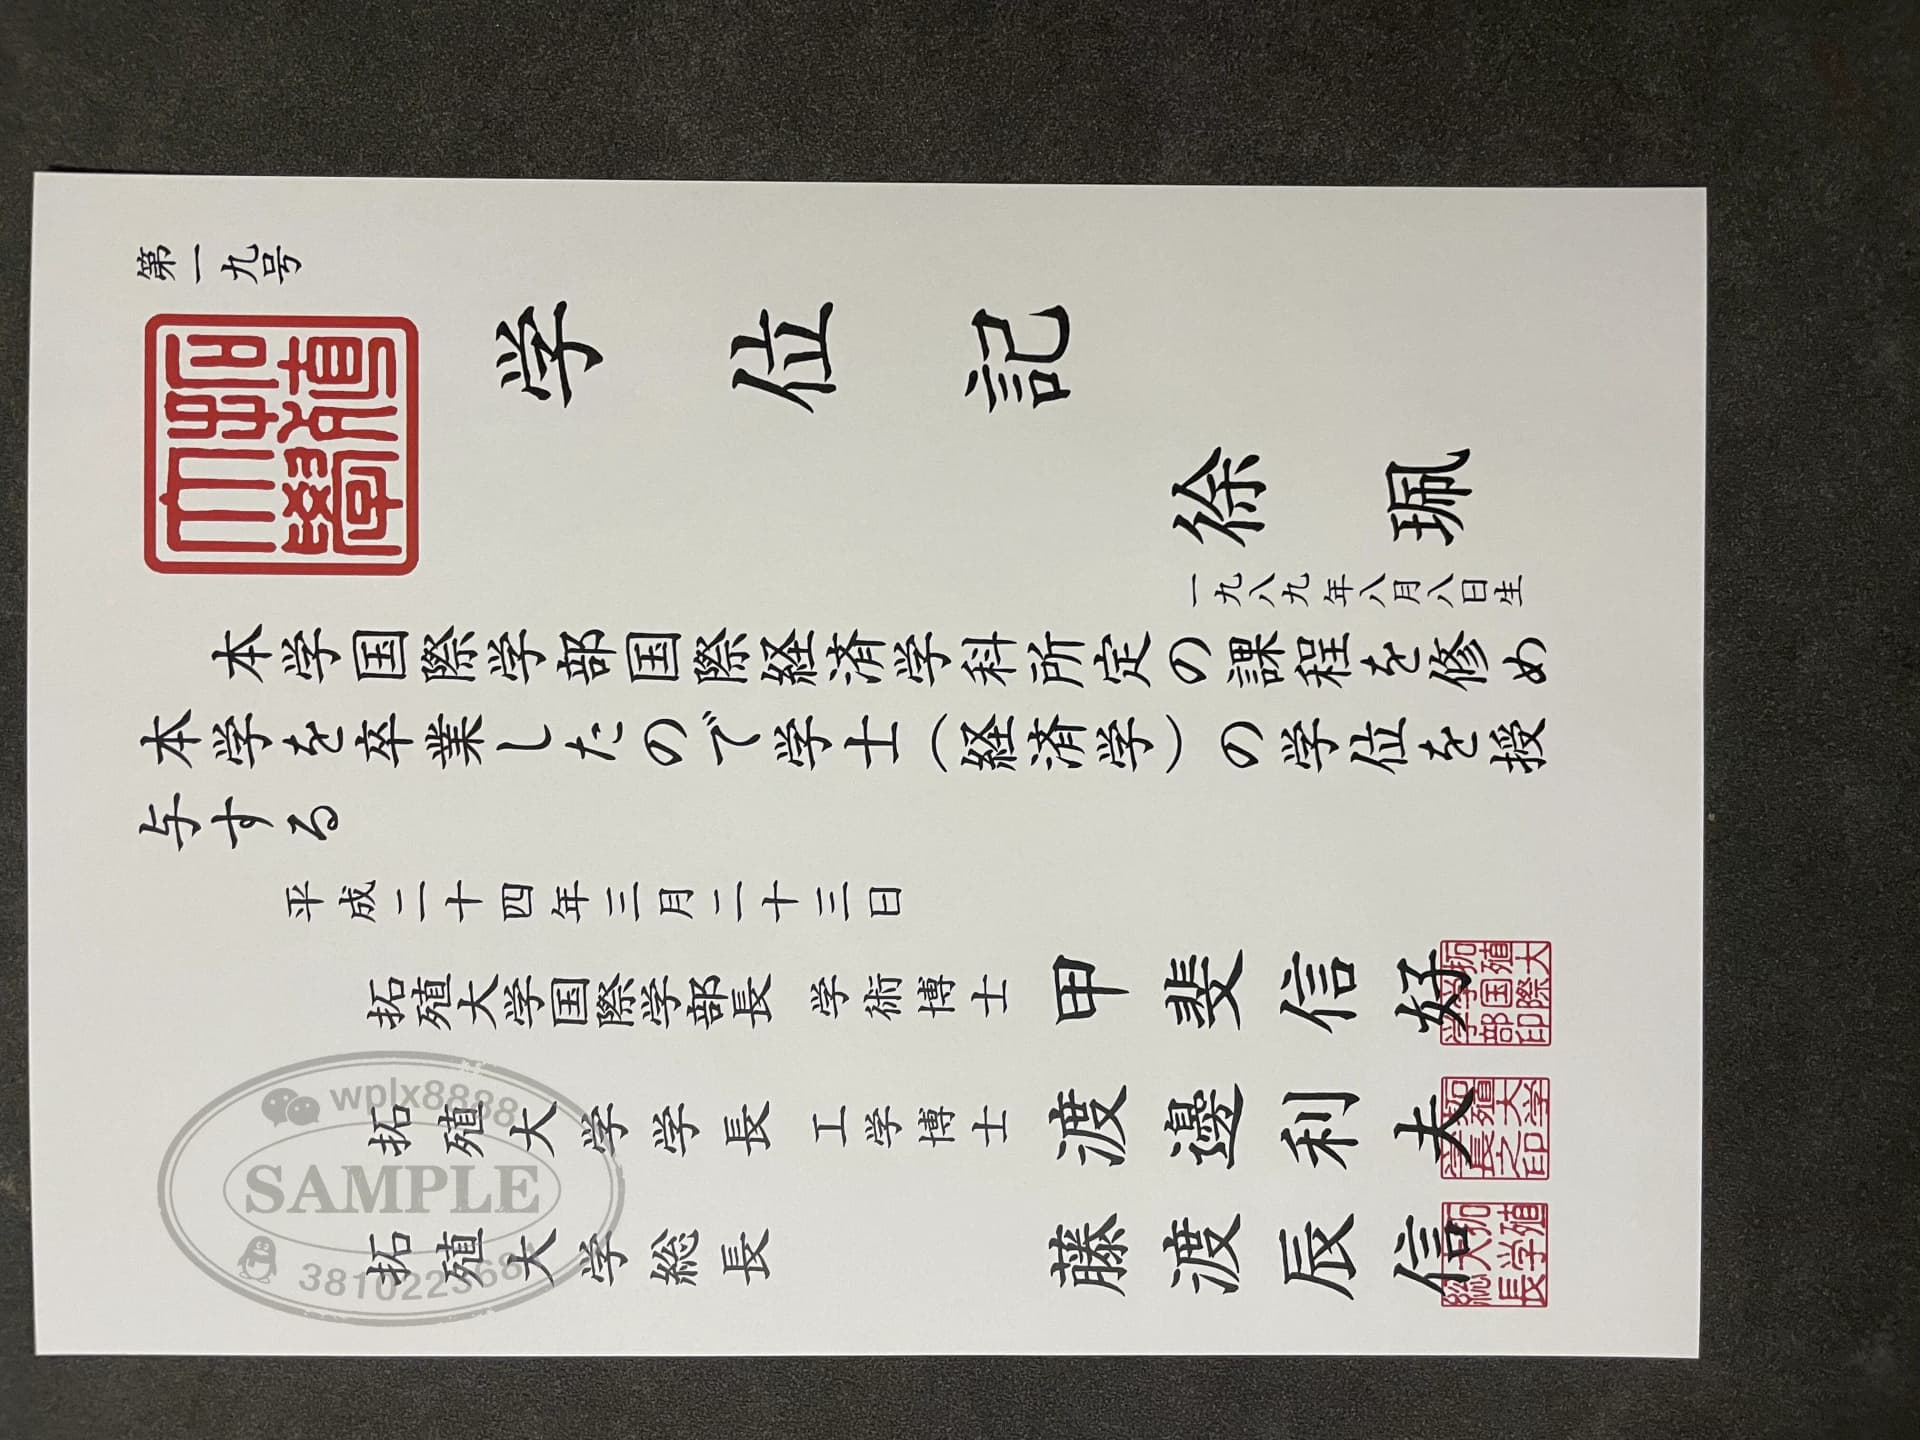 第一九号
学位記
徐珮
一九八九年八月八日生
本学国際学部国際経済学科所定の課程を修め
本学を卒業したので学士(経済学)の学位を授
与する
平成二十四年三月二十三日
拓殖大学国際学部長 学術博士 甲斐信好
拓殖大学学長 工学博士 渡邊利夫
拓殖大学総長 藤渡辰信
拓殖大学
拓殖大学国際学部印
拓殖大学学長之印
拓殖大学総長
wplx8888
SAMPLE
381022368